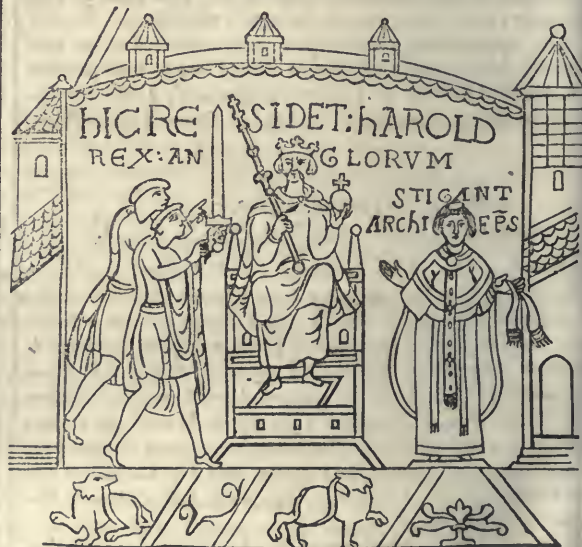 hICRE SIDET:hAROLD
REX:AN GLORVM
STIGANT
ARChI EP̄S